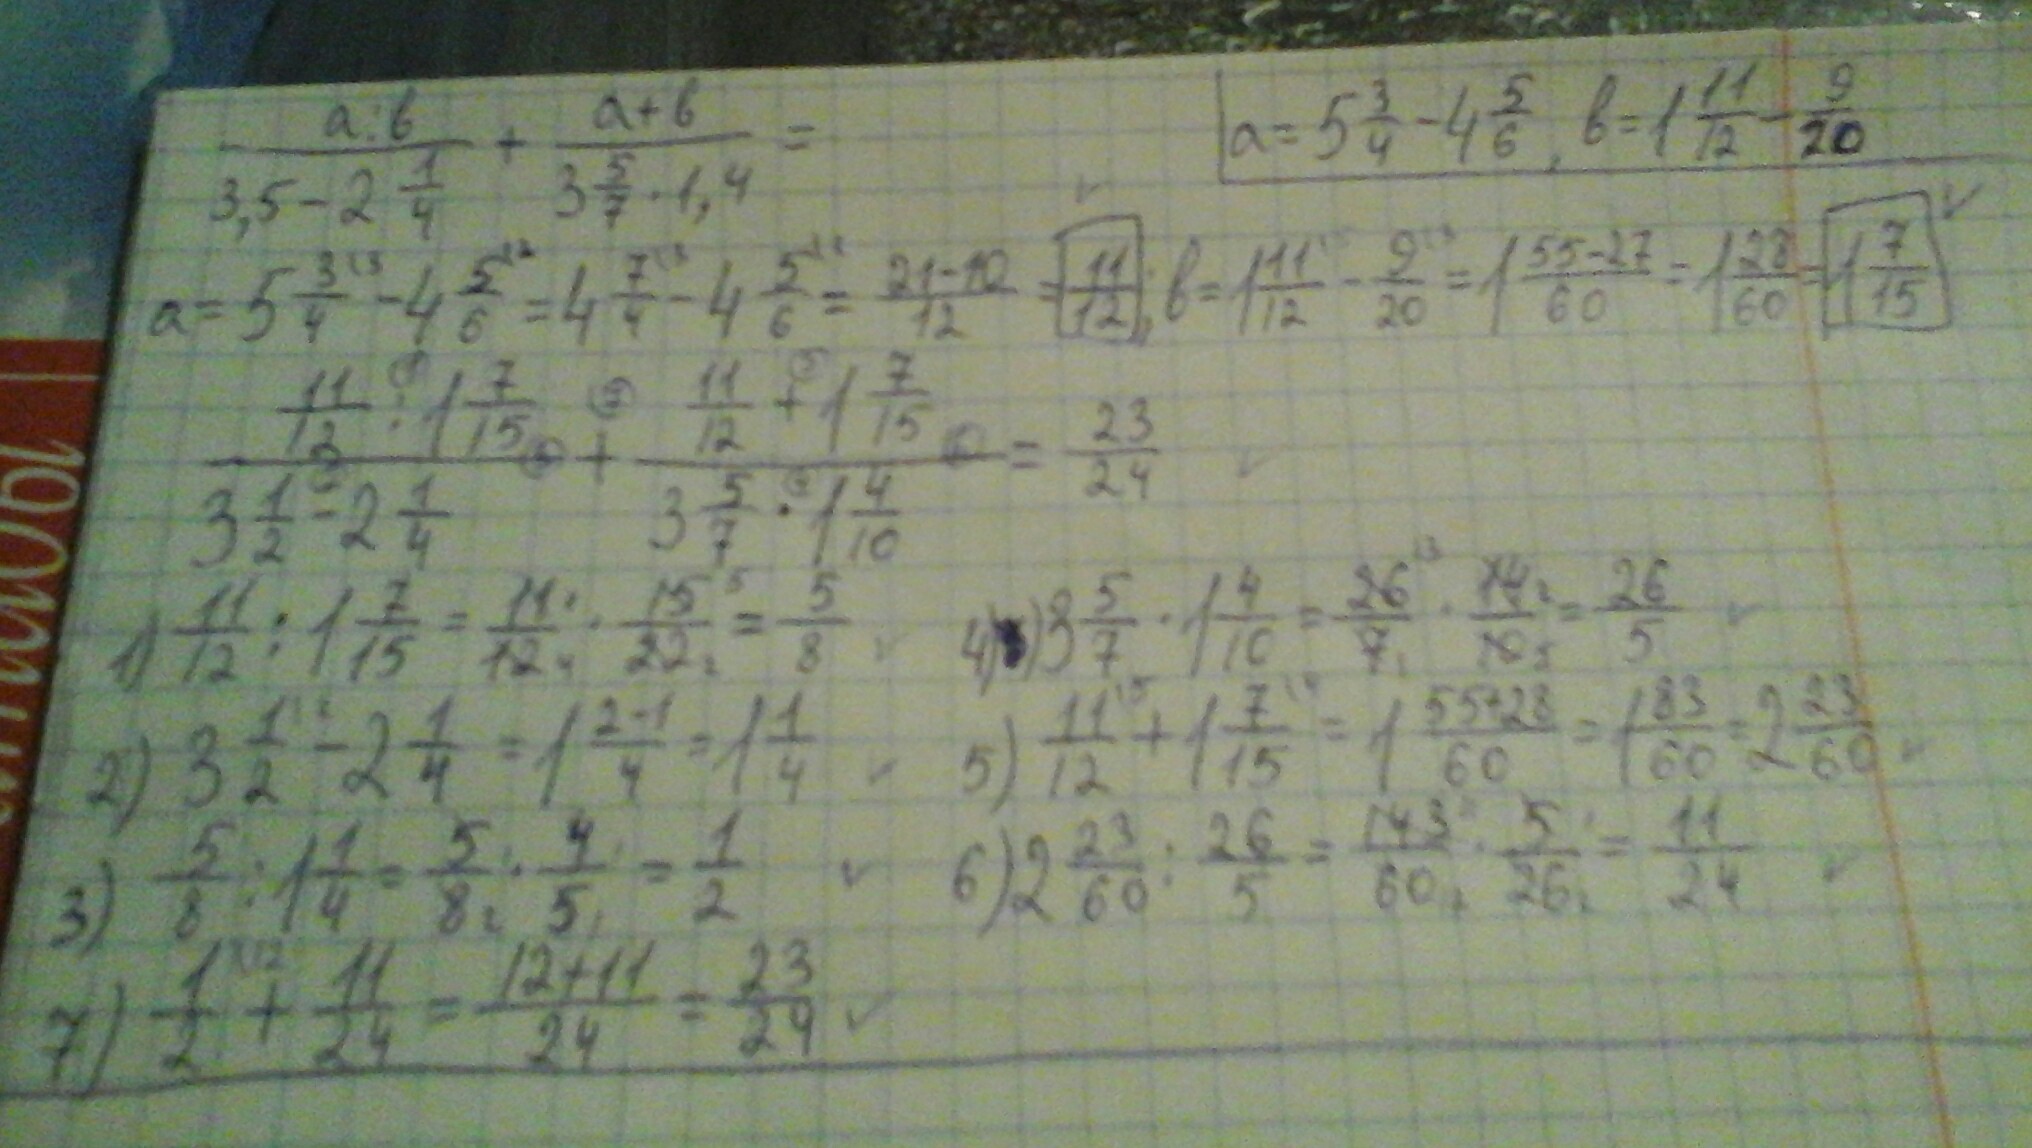 a:b/(3,5-2 1/4) + (a+b)/(3 5/7 · 1,4) =
a=5 3/4 - 4 5/6, b=1 11/12 - 9/20
a=5 3/4 - 4 5/6 = 4 7/4 - 4 5/6 = (21-10)/12 = 11/12; b=1 11/12 - 9/20 = 1 (55-27)/60 = 1 28/60 = 1 7/15
(11/12 : 1 7/15)/(3 1/2 - 2 1/4) + (11/12 + 1 7/15)/(3 5/7 · 1 4/10) = 23/24
1) 11/12 : 1 7/15 = 11/12 · 15/22 = 5/8
2) 3 1/2 - 2 1/4 = 1 (2-1)/4 = 1 1/4
3) 5/8 : 1 1/4 = 5/8 · 4/5 = 1/2
4) 3 5/7 · 1 4/10 = 26/7 · 14/10 = 26/5
5) 11/12 + 1 7/15 = 1 (55+28)/60 = 1 83/60 = 2 23/60
6) 2 23/60 : 26/5 = 143/60 · 5/26 = 11/24
7) 1/2 + 11/24 = (12+11)/24 = 23/24